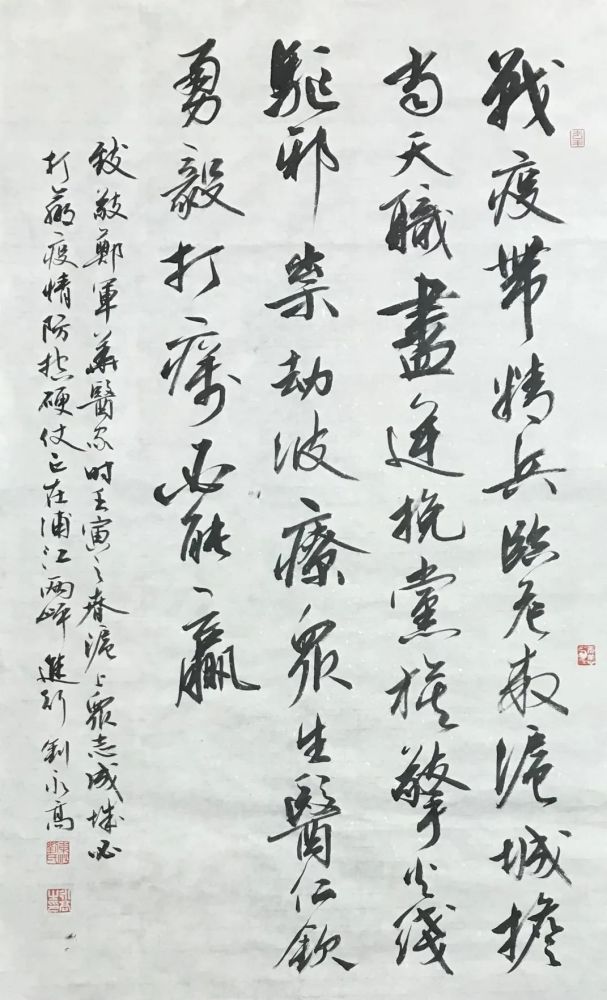 戰疫帶精兵臨危救滬城擔
當天職盡逆挽黨旗擎火綫
驅邪祟劫波療衆生醫仁欽
勇毅打癘必能贏
致敬鄭軍華醫家時壬寅之春滬上衆志成城必
打贏疫情防控硬仗正在浦江兩岸進行劉永高